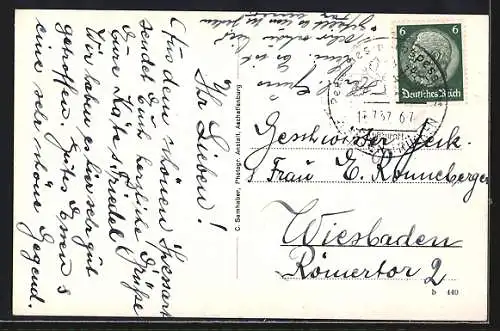 Ihr Lieben!
Aus dem schönen Spessart
sendet Euch herzliche Grüße
Eure Käte + Friedel
Wir haben es hier sehr gut
getroffen. Gutes Essen &
eine sehr schöne Gegend.
C. Samhaber, Photogr. Anstalt, Aschaffenburg
6 6
Deutsches Reich
17.7.37. 6-7
Geschwister Jeck.
Frau E. Ronneberger
Wiesbaden
Römertor 2
b 440